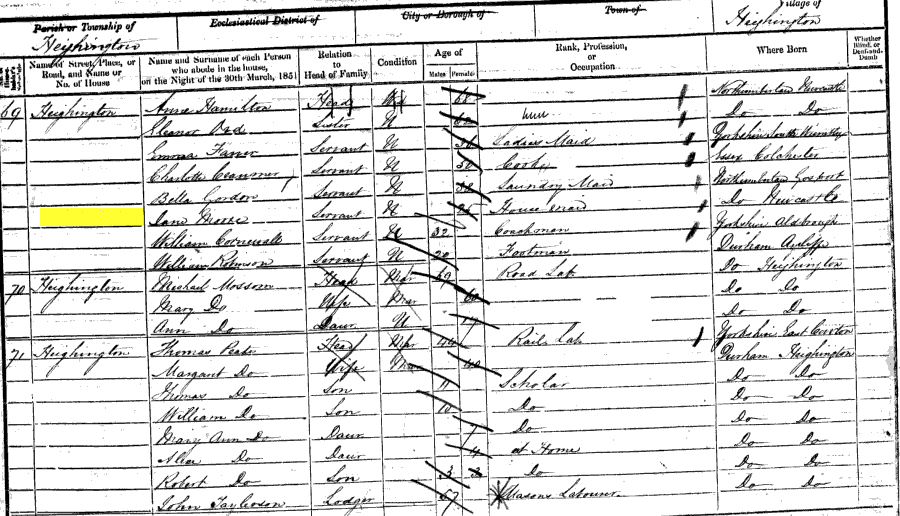 Parish or Township of Ecclesiastical District of City or Borough of Town of Village of
Heighington Heighington
Name of Street, Place, or Road, and Name or No. of House Name and Surname of each Person who abode in the house, on the Night of the 30th March, 1851 Relation to Head of Family Condition Age of Males Females Rank, Profession, or Occupation Where Born Whether Blind, or Deaf-and-Dumb
69 Heighington Anne Hamilton Head Northumberland Newcastle
Eleanor Ord Sister U 62 Do Do
Emma Servant U Ladies Maid Yorkshire South
Charlotte Servant U 50 Cook Essex Colchester
Bella Gordon Servant U Laundry Maid Northumberland Gosport
Jane Servant U 25 House maid Do Newcastle
William Cornewall Servant U 32 Coachman Yorkshire Aldbrough
William Robinson Servant U 20 Footman Durham Aycliffe
70 Heighington Michael Mossom Head Mar 69 Road Lab Do Heighington
Mary Do Wife Mar Do Do
Ann Do Daur U 17 Do Do
71 Heighington Thomas Head Mar 44 Rail Lab Yorkshire East
Margaret Do Wife Mar 40 Durham Heighington
Thomas Do Son 11 Scholar Do Do
William Do Son 10 Do Do Do
Mary Ann Do Daur 7 Do Do Do
Alice Do Daur 4 at Home Do Do
Robert Do Son 3 Do Do Do
John Taylerson Lodger 67 Masons Labourer Do Do